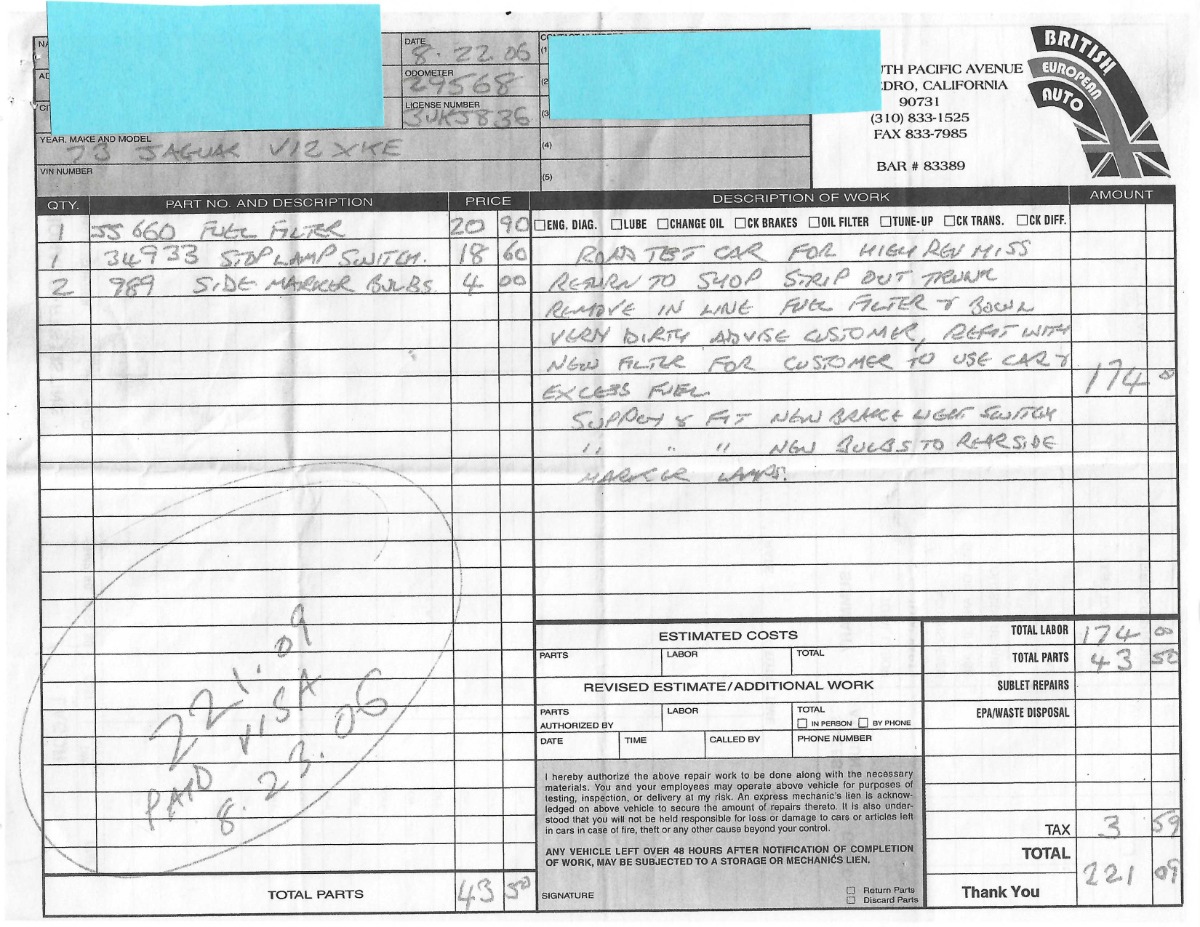 NA
DATE
8. 22 06
AD
ODOMETER
29568
CI
LICENSE NUMBER
3UKJ836
(1
(2
(3
(4)
(5)
YEAR, MAKE AND MODEL
73 JAGUAR V12 XKE
VIN NUMBER
UTH PACIFIC AVENUE
EDRO, CALIFORNIA
90731
(310) 833-1525
FAX 833-7985
BAR # 83389
BRITISH
EUROPEAN
AUTO
QTY. PART NO. AND DESCRIPTION PRICE DESCRIPTION OF WORK AMOUNT
ENG. DIAG. LUBE CHANGE OIL CK BRAKES OIL FILTER TUNE-UP CK TRANS. CK DIFF.
1 JS 660 FUEL FILTER 20 90
1 34933 STOP LAMP SWITCH. 18 60
2 989 SIDE MARKER BULBS. 4 00
ROAD TEST CAR FOR HIGH REV MISS
RETURN TO SHOP STRIP OUT TRUNK
REMOVE IN LINE FUEL FILTER & BOWL
VERY DIRTY ADVISE CUSTOMER, REFIT WITH
NEW FILTER FOR CUSTOMER TO USE CAR &
EXCESS FUEL 174 00
SUPPLY & FIT NEW BRAKE LIGHT SWITCH
" " " NEW BULBS TO REARSIDE
MARKER LAMPS.
221.09
PAID VISA
8.23.06
ESTIMATED COSTS
PARTS LABOR TOTAL
REVISED ESTIMATE/ADDITIONAL WORK
PARTS LABOR TOTAL
AUTHORIZED BY IN PERSON BY PHONE
DATE TIME CALLED BY PHONE NUMBER
I hereby authorize the above repair work to be done along with the necessary
materials. You and your employees may operate above vehicle for purposes of
testing, inspection, or delivery at my risk. An express mechanic's lien is acknow-
ledged on above vehicle to secure the amount of repairs thereto. It is also under-
stood that you will not be held responsible for loss or damage to cars or articles left
in cars in case of fire, theft or any other cause beyond your control.
ANY VEHICLE LEFT OVER 48 HOURS AFTER NOTIFICATION OF COMPLETION
OF WORK, MAY BE SUBJECTED TO A STORAGE OR MECHANICS LIEN.
SIGNATURE
Return Parts
Discard Parts
TOTAL LABOR 174 00
TOTAL PARTS 43 50
SUBLET REPAIRS
EPA/WASTE DISPOSAL
TAX 3 59
TOTAL 221 09
Thank You
TOTAL PARTS 43 50